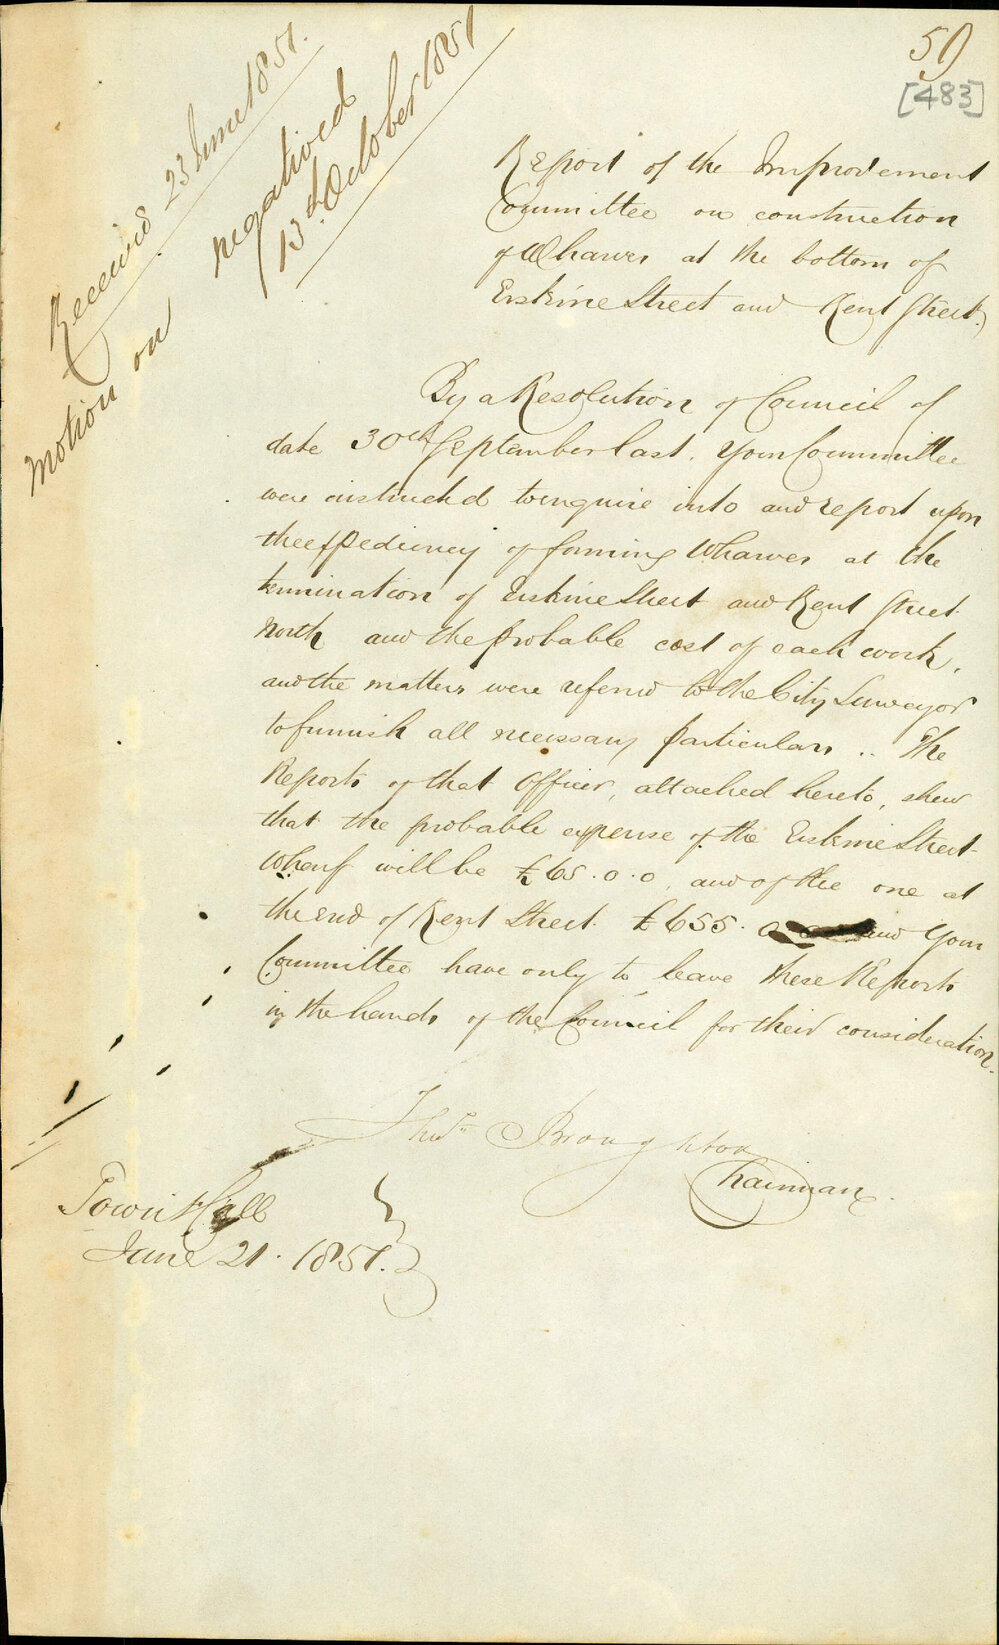 59
[483]
Received 23 June 1851.
Motion on
negatived
13th October 1851
Report of the Improvement
Committee on construction
of Wharves at the bottom of
Erskine Street and Kent Street.
By a Resolution of Council of
date 30th September last. Your Committee
were instructed to inquire into and report upon
the expediency of forming Wharves at the
termination of Erskine Street and Kent Street
North and the probable cost of each work,
and the matters were referred to the City Surveyor
to furnish all necessary particulars .. The
Reports of that Officer, attached hereto, shew
that the probable expense of the Erskine Street
Wharf will be £65.0.0, and of the one at
the end of Kent Street £655. 0 and Your
Committee have only to leave these Reports
in the hands of the Council for their consideration.
Thos. Broughton
Chairman.
Town Hall
June 21. 1851.